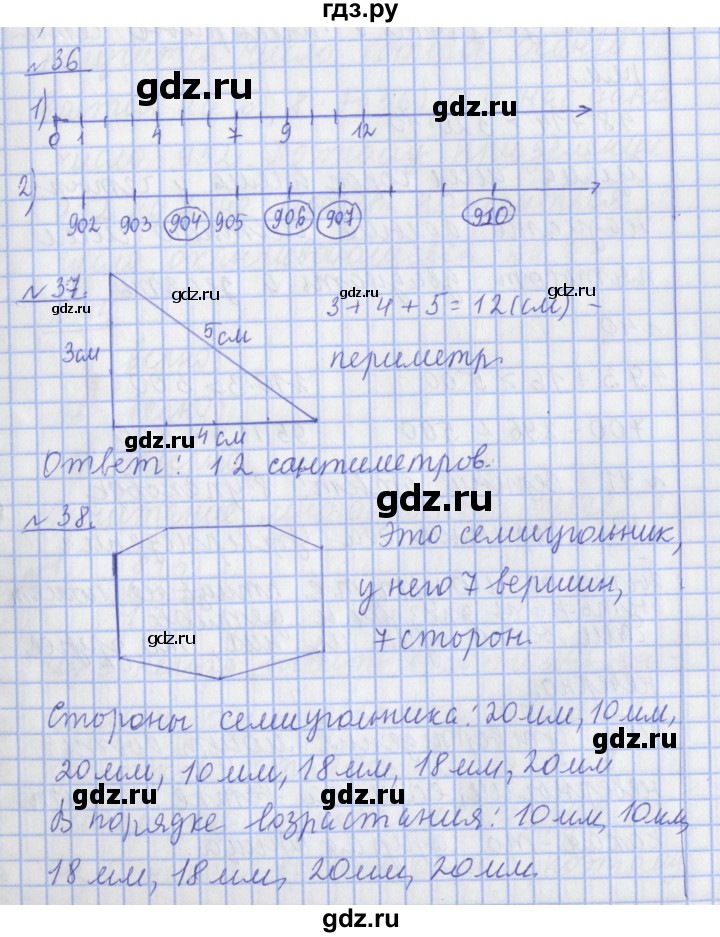 гдз.ру
№36
gdz.ru
gdz.ru
1)
0 1 4 7 9 12
2)
902 903 904 905 906 907 910
gdz.ru
gdz.ru
gdz.ru
№37.
gdz.ru
gdz.ru
3 + 4 + 5 = 12 (см) –
5 см
3 см
периметр.
gdz.ru
4 см
Ответ: 12 сантиметров.
gdz.ru
№38.
gdz.ru
Это семиугольник,
у него 7 вершин,
gdz.ru
7 сторон.
Стороны семиугольника: 20 мм, 10 мм,
gdz.ru
20 мм, 10 мм, 18 мм, 18 мм, 20 мм
gdz.ru
gdz.ru
В порядке возрастания: 10 мм, 10 мм,
18 мм, 18 мм, 20 мм, 20 мм.
gdz.ru